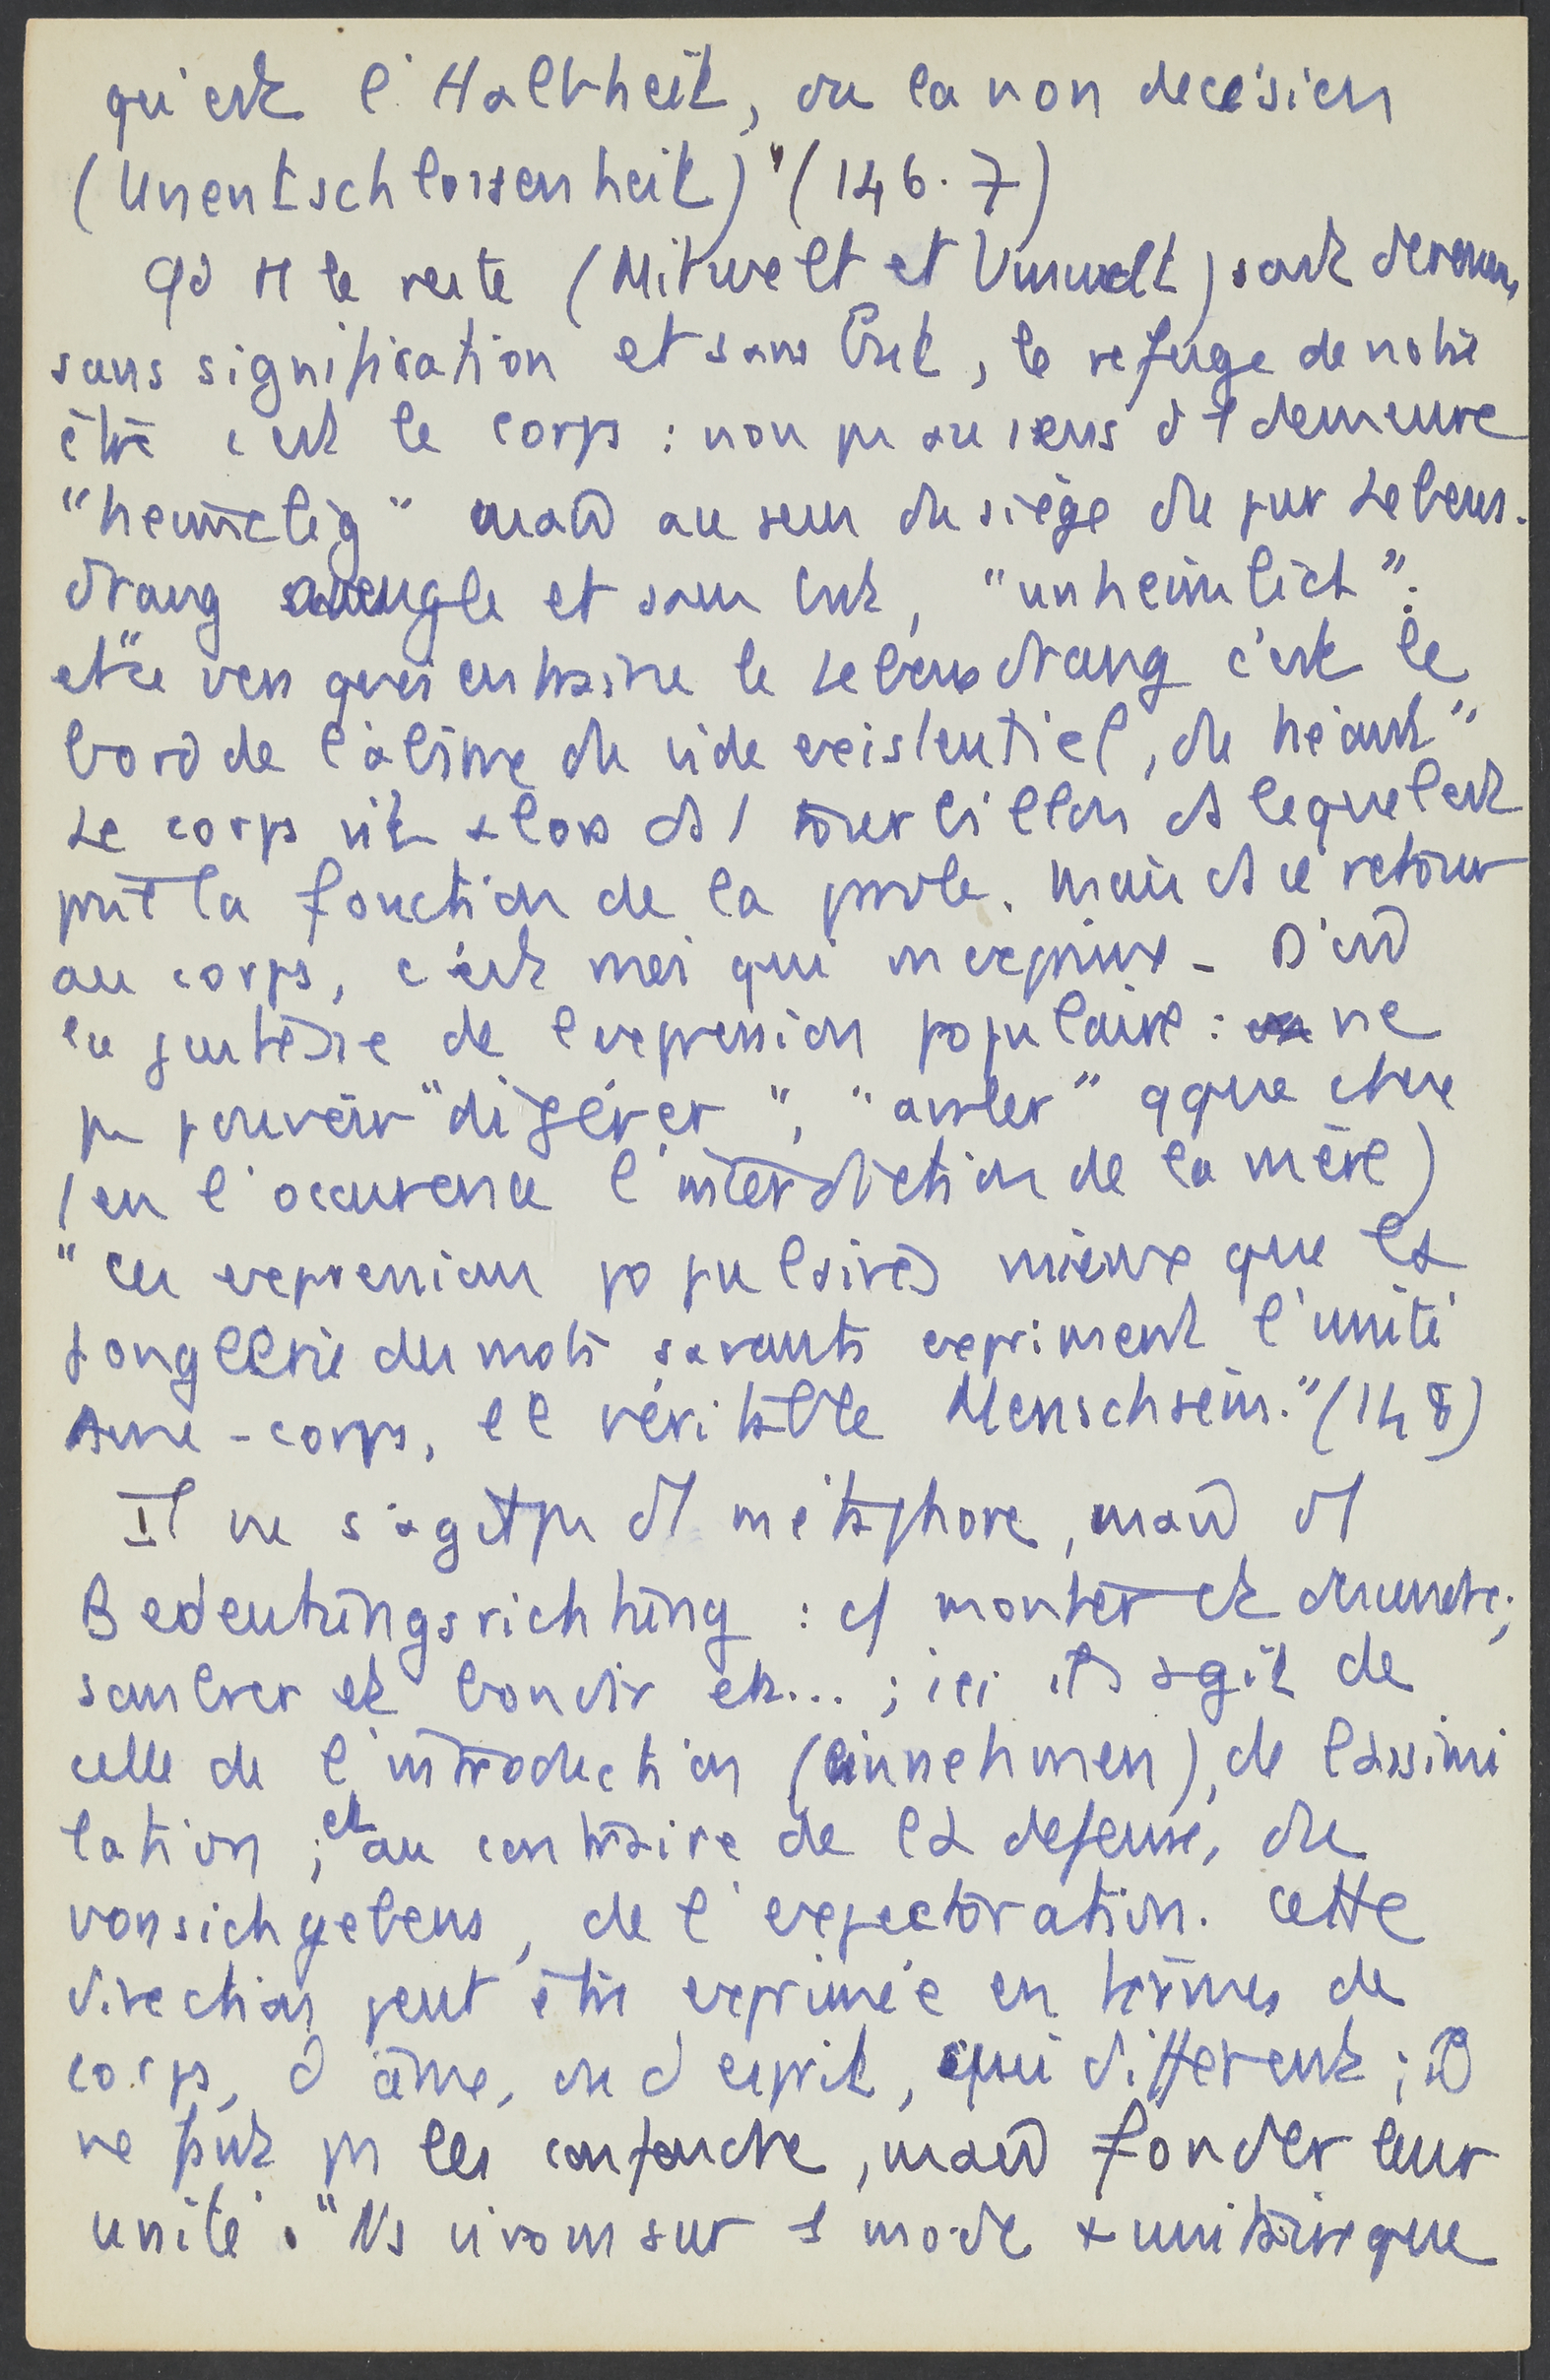 qui est l'Halbheit, ou la non décision
(Unentschlossenheit)" (146.7)
Qd tt le reste (Mitwelt et Umwelt) sont devenus
sans signification et sans but, le refuge de notre
être c'est le corps : non pas au sens d'1 demeure
"heimelig" mais au sens du siège du pur Lebens-
drang aveugle et sans but, "unheimlich":
et "ce vers quoi entraîne le Lebensdrang c'est le
bord de l'abîme du vide existentiel, du néant"
Le corps vit alors ds 1 tourbillon ds lequel est
prit la fonction de la parole. Mais ds ce retour
au corps, c'est moi qui m'exprime - D'où
la justesse de l'expression populaire : ne
pas pouvoir "digérer", "avaler" qque chose
(en l'occurence l'interdiction de la mère)
"Ces expressions populaires mieux que la
jonglerie des mots savants expriment l'unité
âme-corps, et le véritable Menschsein." (148)
Il ne s'agit pas d'1 métaphore, mais d'1
Bedeutungsrichtung : cf monter et descendre;
sombrer et bondir etc... ; ici il s'agit de
celle de l'introduction (einnehmen), de l'assimi
lation ; et au contraire de la defense, du
vonsichgebens, de l'expectoration. Cette
direction peut être exprimée en termes de
corps, d'âme, ou d'esprit, qui différent ; il
ne faut pas les confondre, mais fonder leur
unité. "Ns vivons sur 1 mode + unitaire que